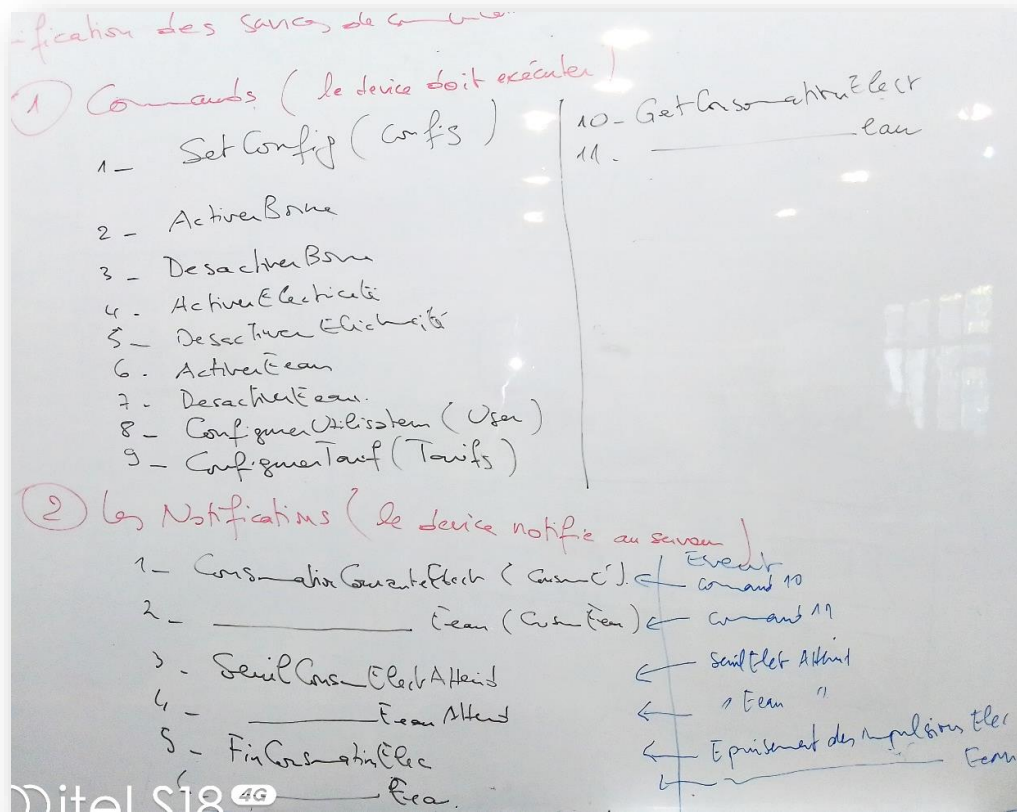 -fication des services de
① Commands (le device doit exécuter)
1- SetConfig (config)
2- ActiverBorne
3- DesactiverBorne
4. ActiverElectricité
5- DesactiverElectricité
6. ActiverEeau
7- DesactiverEeau.
8- ConfigurerUtilisateur (User)
9- ConfigurerTarif (Tarifs)
10- GetConsomationElect
11. ________ Eau
② Les Notifications (le device notifie au serveur)
Event
1- ConsomationCouranteElect (ConsomE). ← Comand 10
2- ________ Eeau (ConsomEeau) ← Comand 11
3- SeuilConsomElectAtteind ← SeuilElect Atteind
4- ________ EeauAtteind ← " Eeau "
5- FinConsomationElec ← Epuisement des impulsions Elec
6- ________ Eea. ← ________ Eeau
itel S18 4G